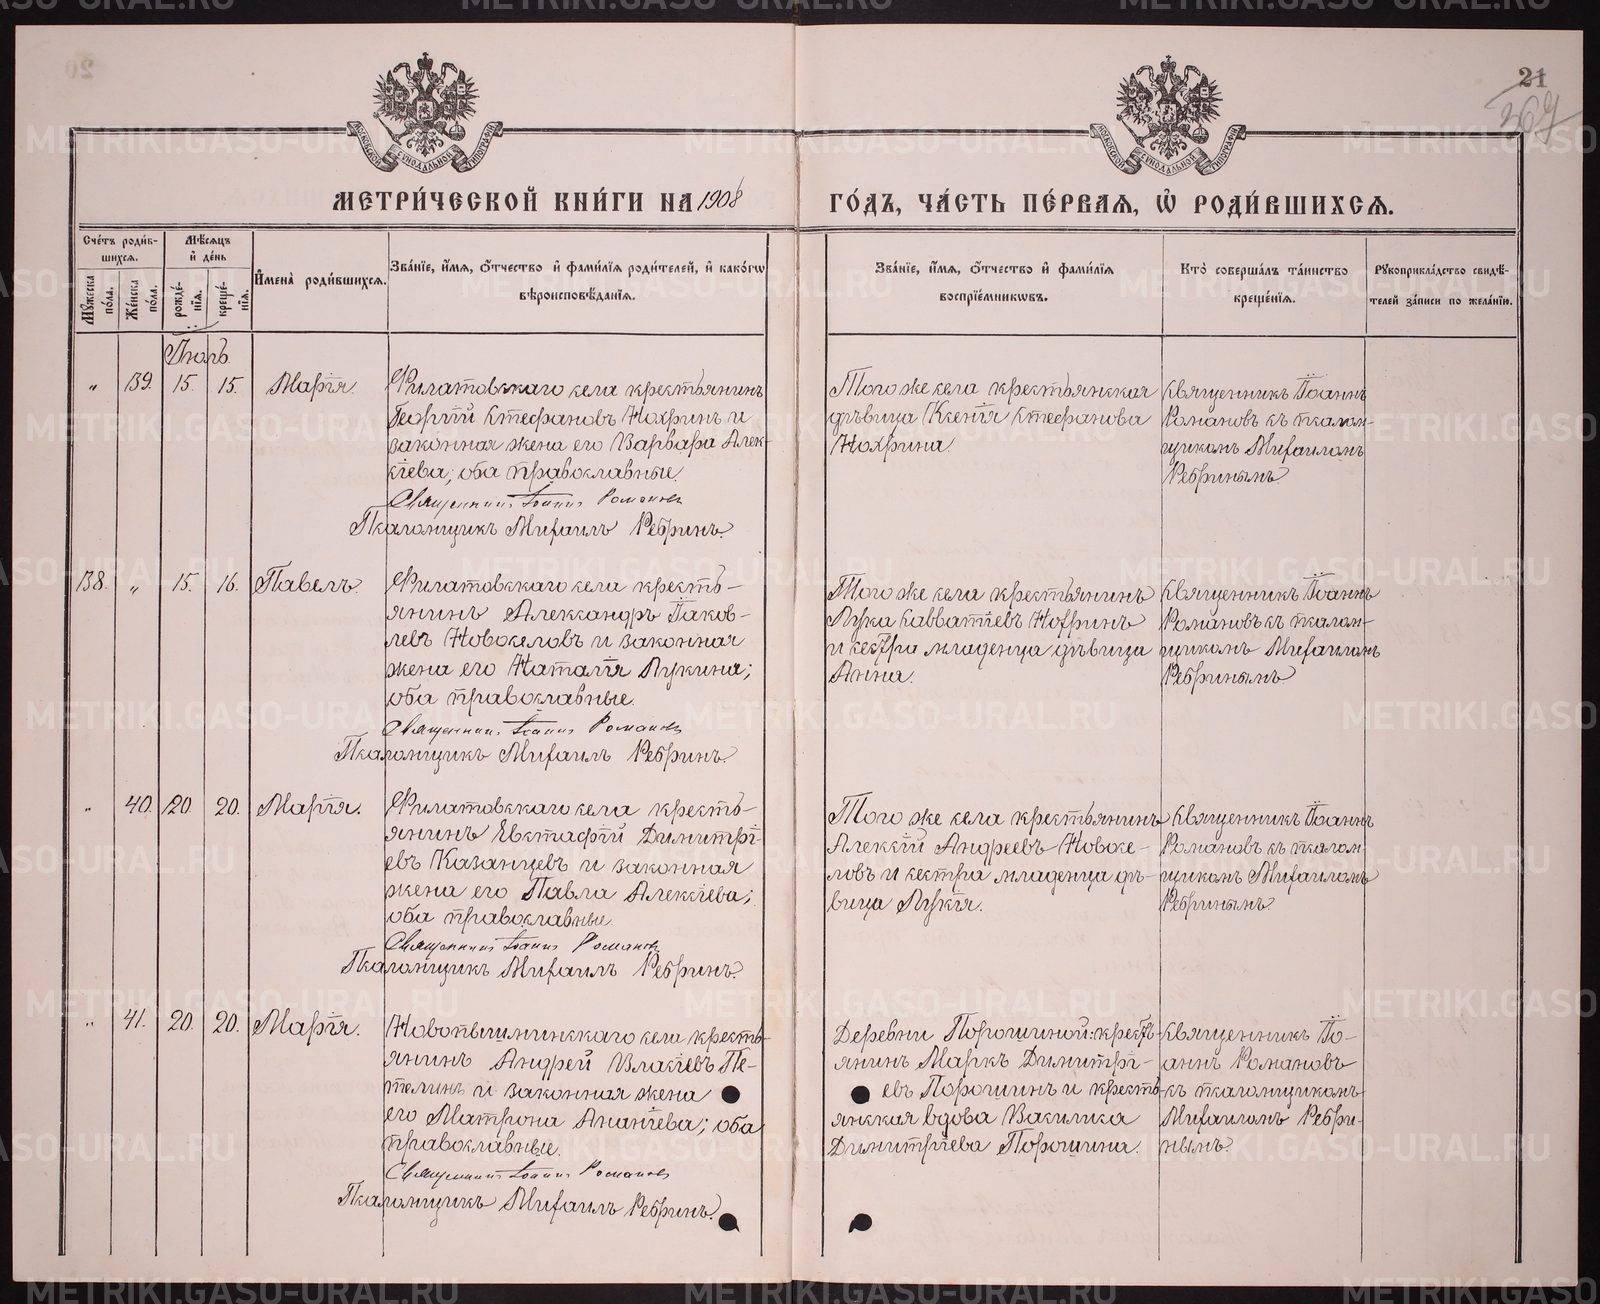 20
21
367
МОСКОВСКОЙ СѴНОДАЛЬНОЙ ТИПОГРАФІИ
МОСКОВСКОЙ СѴНОДАЛЬНОЙ ТИПОГРАФІИ
МЕТРИ́ЧЕСКОЙ КНИ́ГИ НА 1908 ГО́ДЪ, ЧА́СТЬ ПЕ́РВАѦ, Ѡ РОДИ́ВШИХСѦ.
Сче́тъ роди́в-
шихсѧ.
Мꙋ́жеска по́ла.
Же́нска по́ла.
Мѣ́сѧцъ и де́нь
рожде́-нїѧ.
креще́-нїѧ.
И҆мена̀ роди́вшихсѧ.
Зва́нїе, и҆́мѧ, о҆́тчество и҆ фами́лїѧ роди́телей, и҆ како́гѡ
вѣроисповѣ́данїѧ.
Зва́нїе, и҆́мѧ, о҆́тчество и҆ фами́лїѧ
воспрїе́мникѡвъ.
Кто̀ соверша́лъ та́инство
креще́нїѧ.
Рꙋкоприкла́дство свидѣ́-
телей за́писи по жела́нїю.
Іюль.
„ 139. 15. 15. Марія.
Филатовскаго села крестьянинъ
Георгій Стефановъ Нохринъ и
законная жена его Варвара Алек-
сіева; оба православные.
Священникъ Іоаннъ Романовъ
Псаломщикъ Михаилъ Ребринъ.
Того же села крестьянская
дѣвица Ксенія Стефанова
Нохрина.
Священникъ Іоаннъ
Романовъ съ псалом-
щикомъ Михаиломъ
Ребринымъ
138. „ 15. 16. Павелъ.
Филатовскаго села кресть-
янинъ Александръ Іаков-
левъ Новоселовъ и законная
жена его Наталія Лукина;
оба православные.
Священникъ Іоаннъ Романовъ
Псаломщикъ Михаилъ Ребринъ.
Того же села крестьянинъ
Лука Савватіевъ Нохринъ
и сестра младенца дѣвица
Анна.
Священникъ Іоаннъ
Романовъ съ псалом-
щикомъ Михаиломъ
Ребринымъ
„ 40. 20. 20. Марія.
Филатовскаго села кресть-
янинъ Евстафій Димитрі-
евъ Казанцевъ и законная
жена его Павла Алексіева;
оба православные
Священникъ Іоаннъ Романовъ
Псаломщикъ Михаилъ Ребринъ.
Того же села крестьянинъ
Алексій Андреевъ Новосе-
ловъ и сестра младенца дѣ-
вица Лукія.
Священникъ Іоаннъ
Романовъ съ псалом-
щикомъ Михаиломъ
Ребринымъ.
„ 41. 20. 20. Марія.
Новопышминскаго села кресть-
янинъ Андрей Власіевъ Пе-
телинъ и законная жена
его Матрона Ананіева; оба
православные.
Священникъ Іоаннъ Романовъ
Псаломщикъ Михаилъ Ребринъ.
Деревни Порошиной: кресть-
янинъ Маркъ Димитрі-
евъ Порошинъ и кресть-
янская вдова Василиса
Димитріева Порошина.
Священникъ Іо-
аннъ Романовъ
съ псаломщикомъ
Михаиломъ Ребри-
нымъ.
METRIKI.GASO-URAL.RU